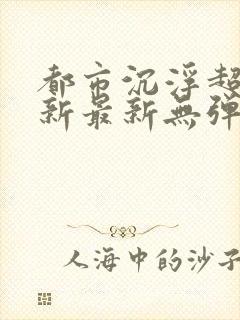 都市沉浮超
新最新無彈
人海中的沙子